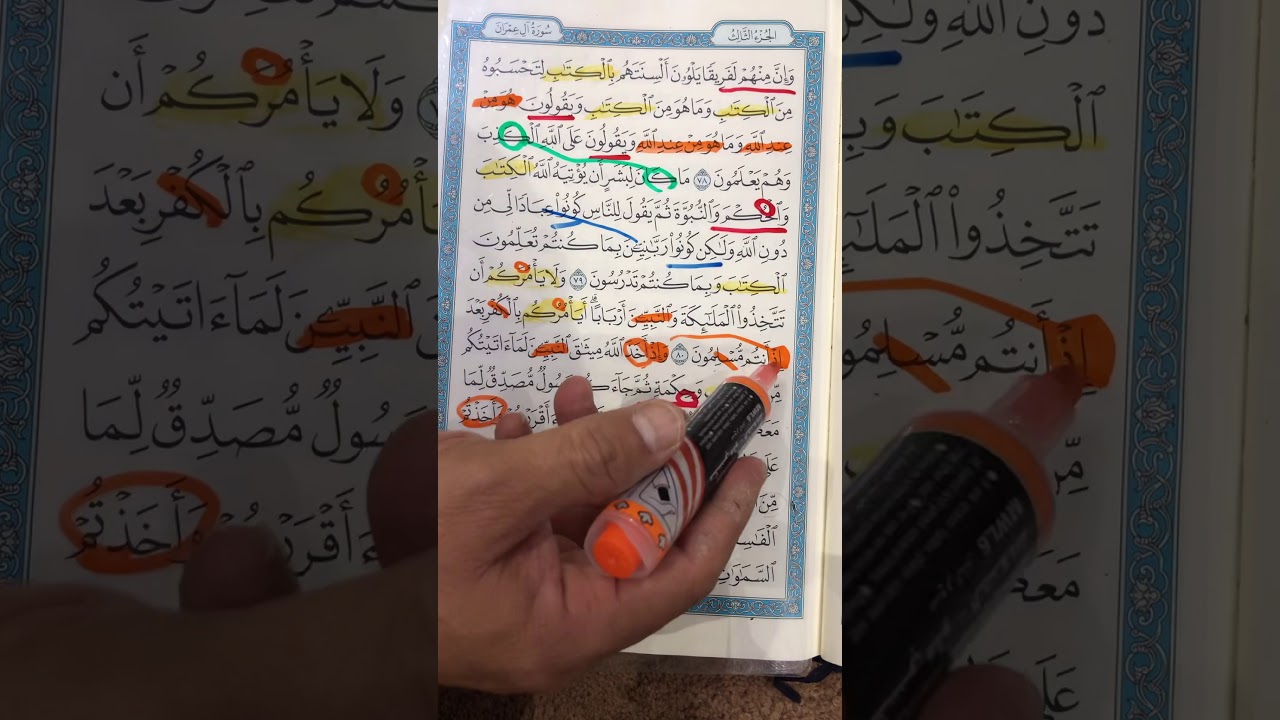 الجزء الثالث
سورة آل عمران
وَإِنَّ مِنْهُمْ لَفَرِيقًا يَلْوُۥنَ أَلْسِنَتَهُم بِٱلْكِتَٰبِ لِتَحْسَبُوهُ
مِنَ ٱلْكِتَٰبِ وَمَا هُوَ مِنَ ٱلْكِتَٰبِ وَيَقُولُونَ هُوَ مِنْ
عِندِ ٱللَّهِ وَمَا هُوَ مِنْ عِندِ ٱللَّهِ وَيَقُولُونَ عَلَى ٱللَّهِ ٱلْكَذِبَ
وَهُمْ يَعْلَمُونَ ٧٨ مَا كَانَ لِبَشَرٍ أَن يُؤْتِيَهُ ٱللَّهُ ٱلْكِتَٰبَ
وَٱلْحُكْمَ وَٱلنُّبُوَّةَ ثُمَّ يَقُولَ لِلنَّاسِ كُونُوا۟ عِبَادًا لِّى مِن
دُونِ ٱللَّهِ وَلَٰكِن كُونُوا۟ رَبَّٰنِيِّۦنَ بِمَا كُنتُمْ تُعَلِّمُونَ
ٱلْكِتَٰبَ وَبِمَا كُنتُمْ تَدْرُسُونَ ٧٩ وَلَا يَأْمُرَكُمْ أَن
تَتَّخِذُوا۟ ٱلْمَلَٰٓئِكَةَ وَٱلنَّبِيِّۦنَ أَرْبَابًا ۗ أَيَأْمُرُكُم بِٱلْكُفْرِ بَعْدَ
إِذْ أَنتُم مُّسْلِمُونَ ٨٠ وَإِذْ أَخَذَ ٱللَّهُ مِيثَٰقَ ٱلنَّبِيِّۦنَ لَمَآ ءَاتَيْتُكُم
مِّن وَحِكْمَةٍ ثُمَّ جَآءَكُمْ رَسُولٌ مُّصَدِّقٌ لِّمَا
ءَأَقْرَرْتُمْ وَأَخَذْتُمْ
عَلَىٰ
ٱلسَّمَٰوَٰتِ